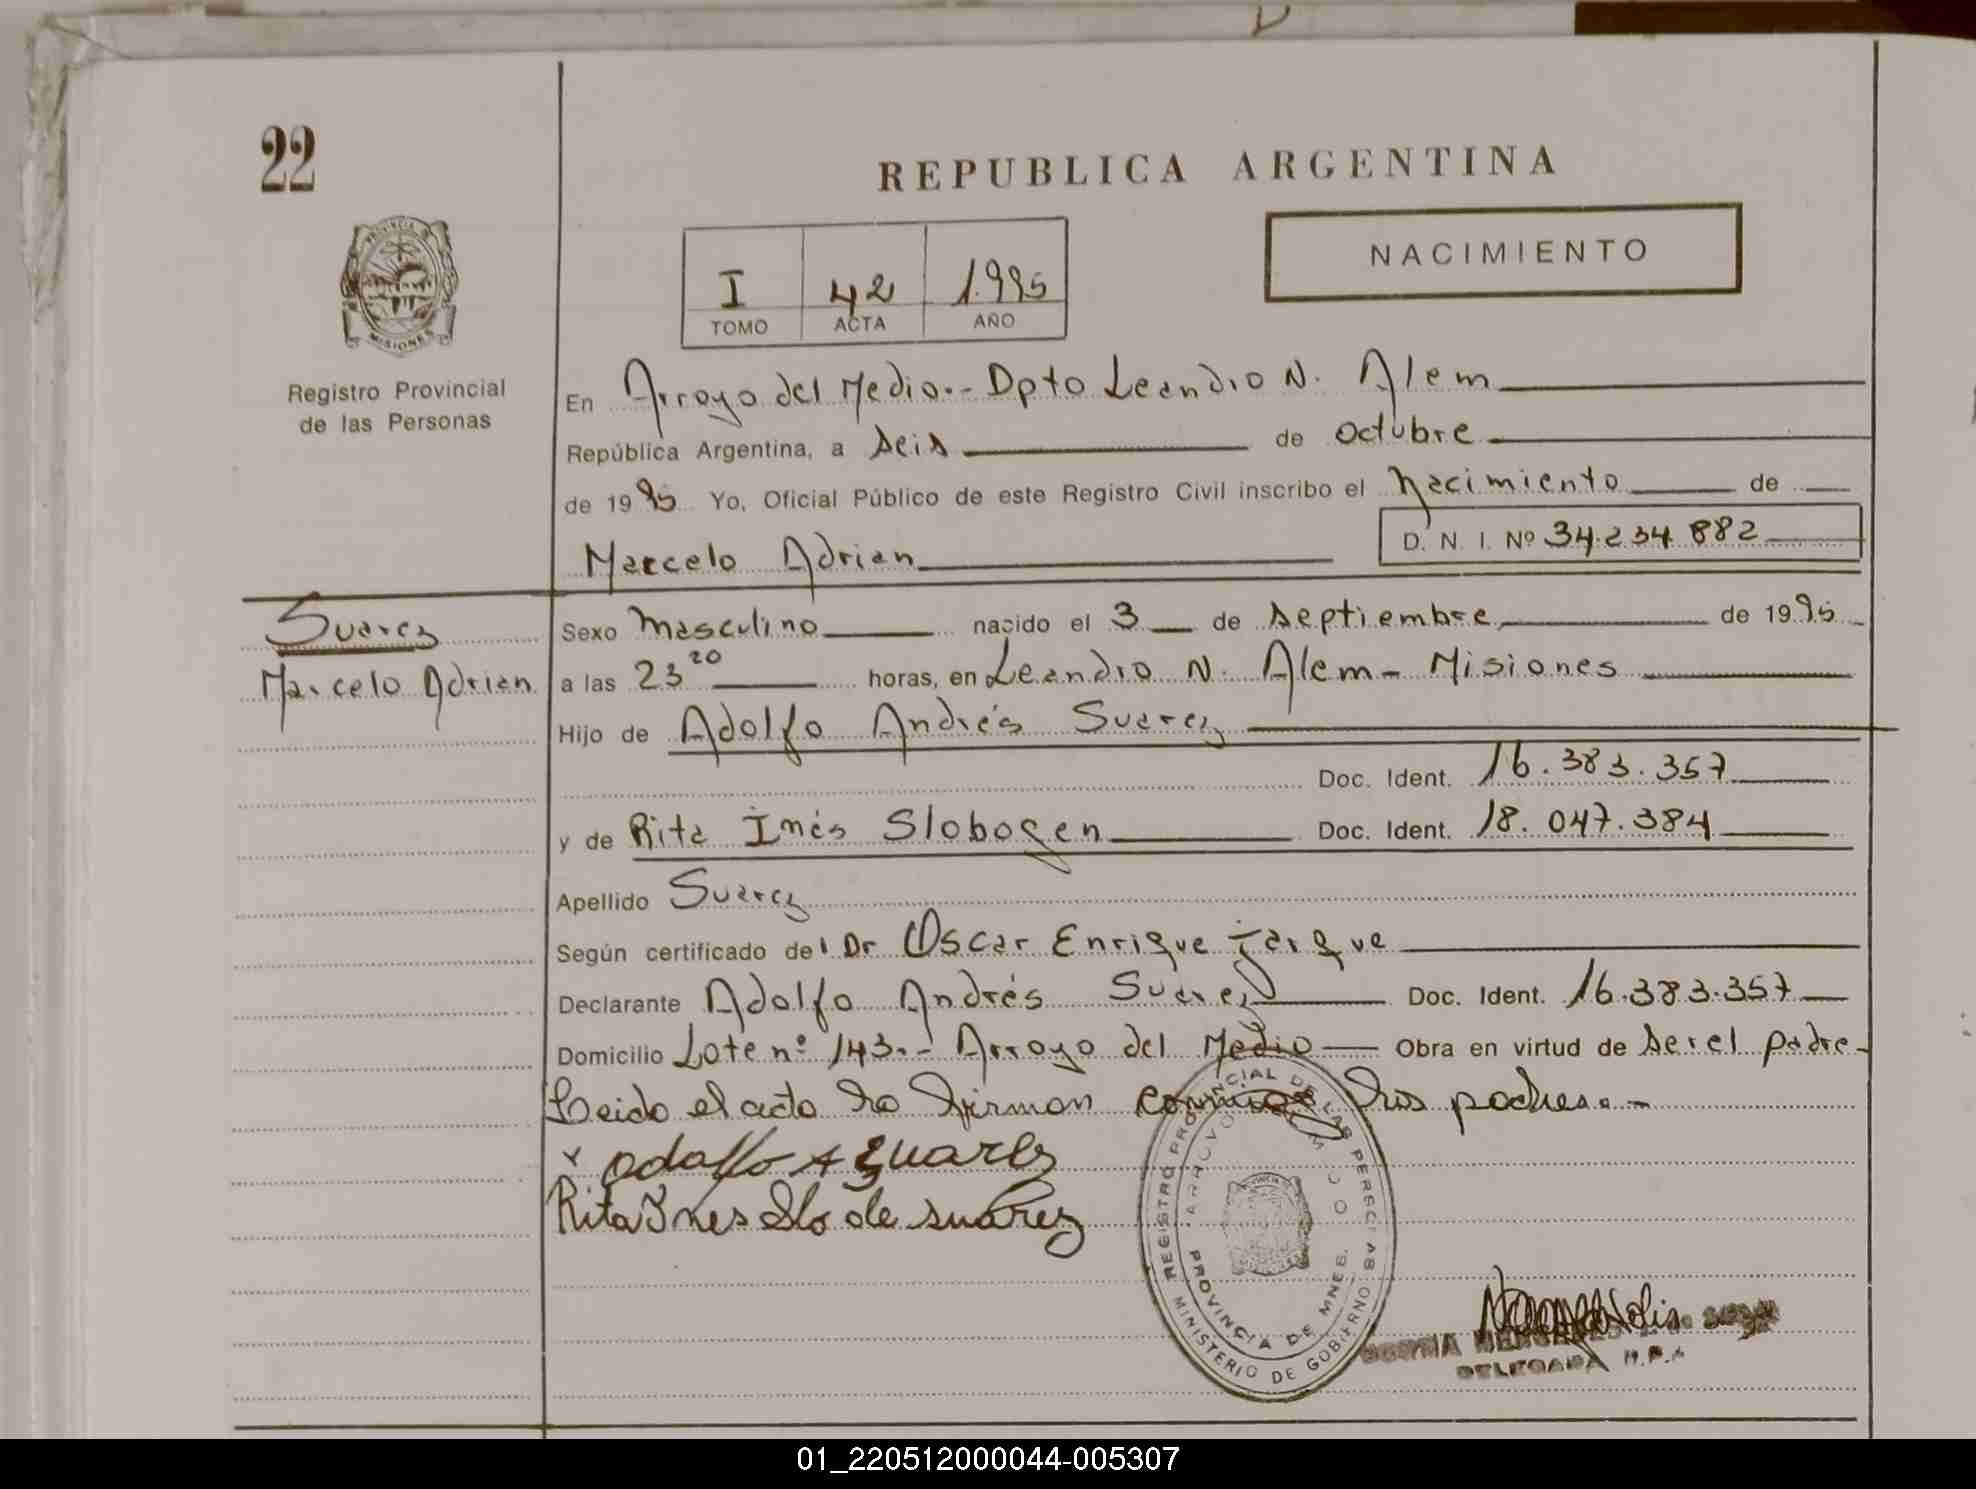 22
REPUBLICA ARGENTINA
PROVINCIA DE MISIONES
I 42 1.995
TOMO ACTA AÑO
NACIMIENTO
Registro Provincial
de las Personas
En Arroyo del Medio.- Dpto Leandro N. Alem
República Argentina, a seis de octubre
de 1995 Yo, Oficial Público de este Registro Civil inscribo el Nacimiento de
Marcelo Adrian D. N. I. Nº 34.234.882
Suarez
Marcelo Adrian
Sexo masculino nacido el 3 de septiembre de 1995
a las 23 20 horas, en Leandro N. Alem - Misiones
Hijo de Adolfo Andrés Suarez
Doc. Ident. 16.383.357
y de Rita Inés Slobogen Doc. Ident. 18.047.384
Apellido Suarez
Según certificado del Dr Oscar Enrique Jarque
Declarante Adolfo Andrés Suarez Doc. Ident. 16.383.357
Domicilio Lote nº 143.- Arroyo del Medio Obra en virtud de ser el padre-
Leido el acta la firman conmigo los padres.-
x adolfo A Suarez
Rita Ines Slo de suarez
REGISTRO PROVINCIAL DE LAS PERSONAS
MINISTERIO DE GOBIERNO
PROVINCIA DE MNES.
DELEGADA R.P.
01_220512000044-005307